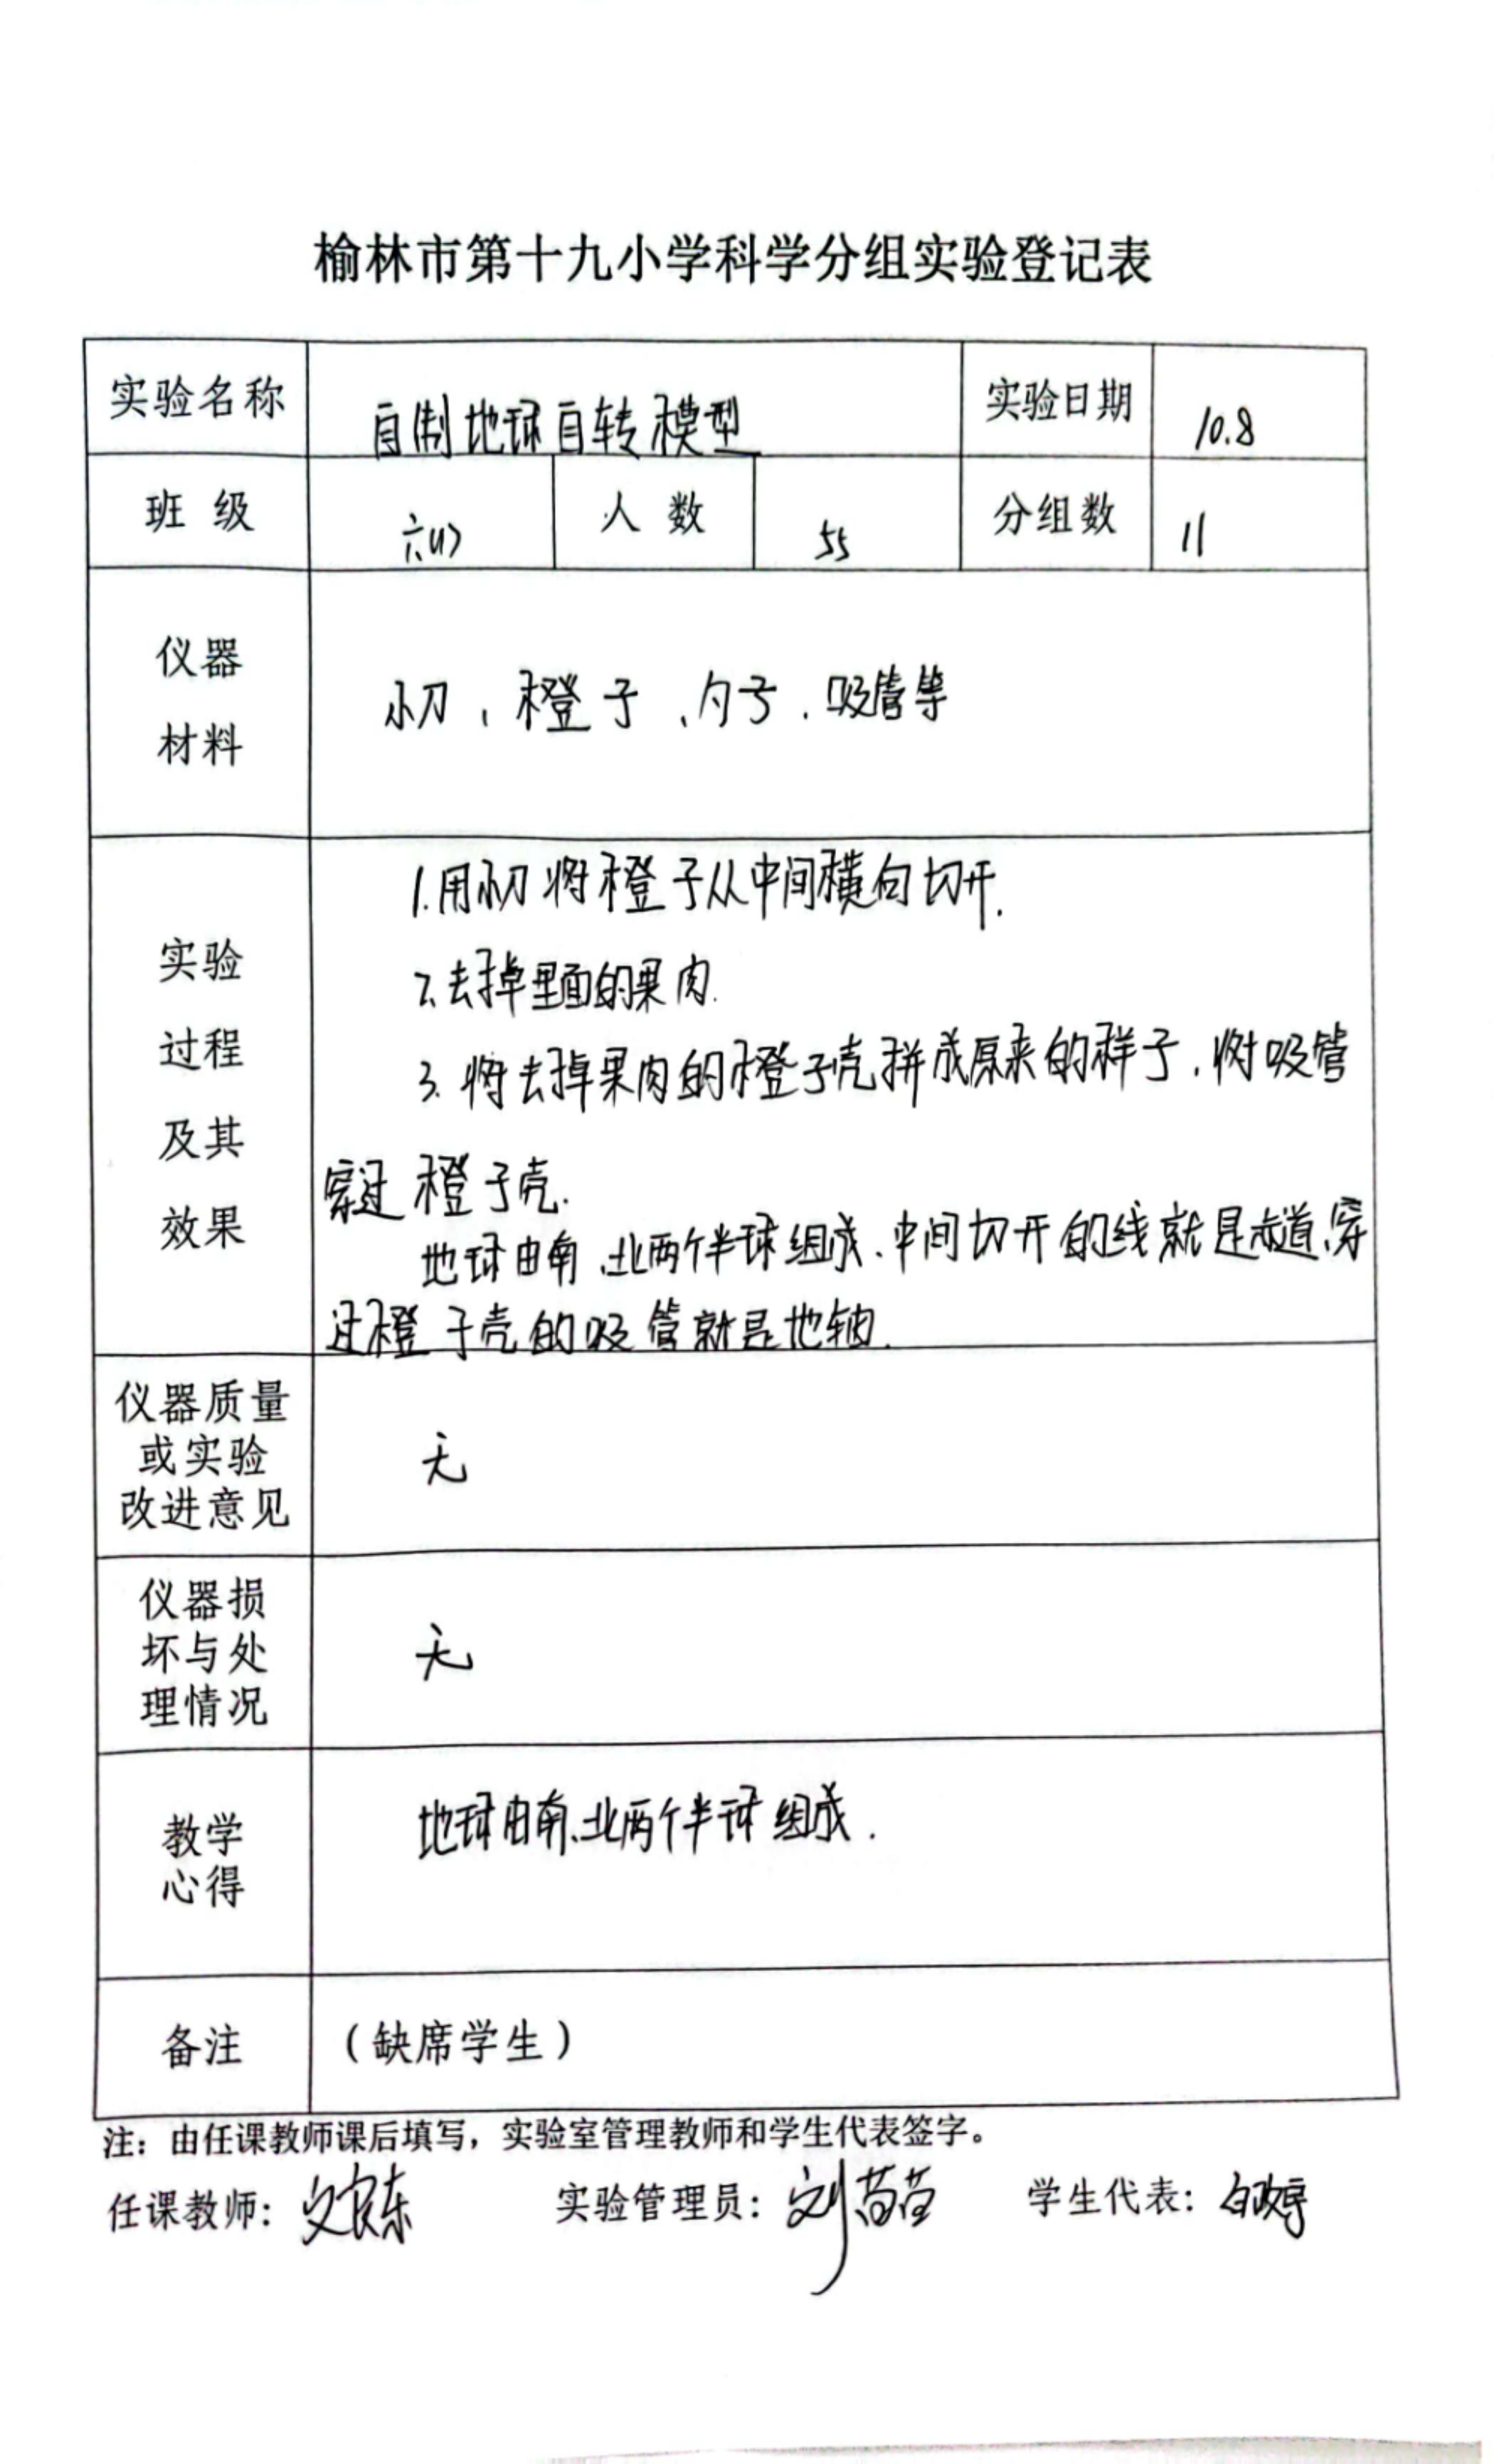 榆林市第十九小学科学分组实验登记表
实验名称 自制地球自转模型 实验日期 10.8
班 级 六(1) 人 数 55 分组数 11
仪器
材料
小刀、橙子、勺子、吸管等
实验
过程
及其
效果
1.用小刀将橙子从中间横向切开.
2.去掉里面的果肉.
3.将去掉果肉的橙子壳拼成原来的样子,将吸管
穿过橙子壳.
地球由南、北两个半球组成、中间切开的线就是赤道,穿
过橙子壳的吸管就是地轴.
仪器质量
或实验
改进意见
无
仪器损
坏与处
理情况
无
教学
心得
地球由南、北两个半球组成.
备注 (缺席学生)
注：由任课教师课后填写，实验室管理教师和学生代表签字。
任课教师： 实验管理员：刘苗苗 学生代表：